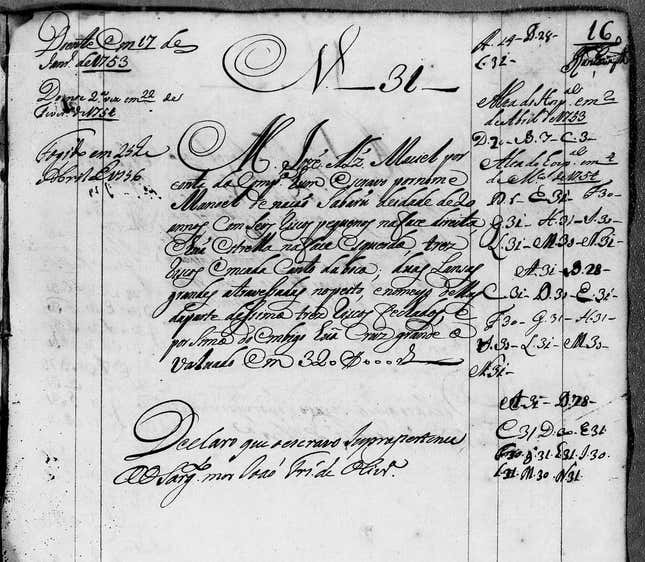 Doente Em 17 de
Janr.º de 1753
Doente 2.ª vez em 22 de
Fever.º de 1754
Fogido em 25 de
Abril de 1756
N.º 31
M. Jozé Alz Maciel por
conta da Comp.ª hum Escravo por nome
Manoel de nação Sabarú de idade de 20
annos Com Seis riscos pequenos na face direita
e huã Estrella na face Esquerda trez
riscos Em cada Canto da boca, duas Lanças
grandes atravesadas no peito, e no meyo dellas
da parte de Sima trez riscos fechados, e
por Sima do embigo huã Cruz grande a
valuado Em 320$000 rs
Declaro que o escravo Supra pertence
ao Sarg.to mor João Frz de Olivr.ª
16
A. 14 - D. 28 -
E. 31 -
Alta do Hosp.al em 2
de Abril de 1753
D. 20 - B. 7 - C. 31 -
Alta do Hosp.al em 4
de M.ço de 1754
D. 5 - E. 31 - F. 30 -
G. 31 - H. 31 - I. 30 -
L. 31 - M. 30 - N. 31 -
A. 31 - B. 28 -
C. 31 - D. 30 - E. 31 -
F. 30 - G. 31 - H. 31 -
I. 30 - L. 31 - M. 30 -
N. 31 -
A. 31 - B. 28 -
C. 31 D. 30 E. 31
F. 30 G. 31 H. 31 I. 30
L. 31 M. 30 N. 31